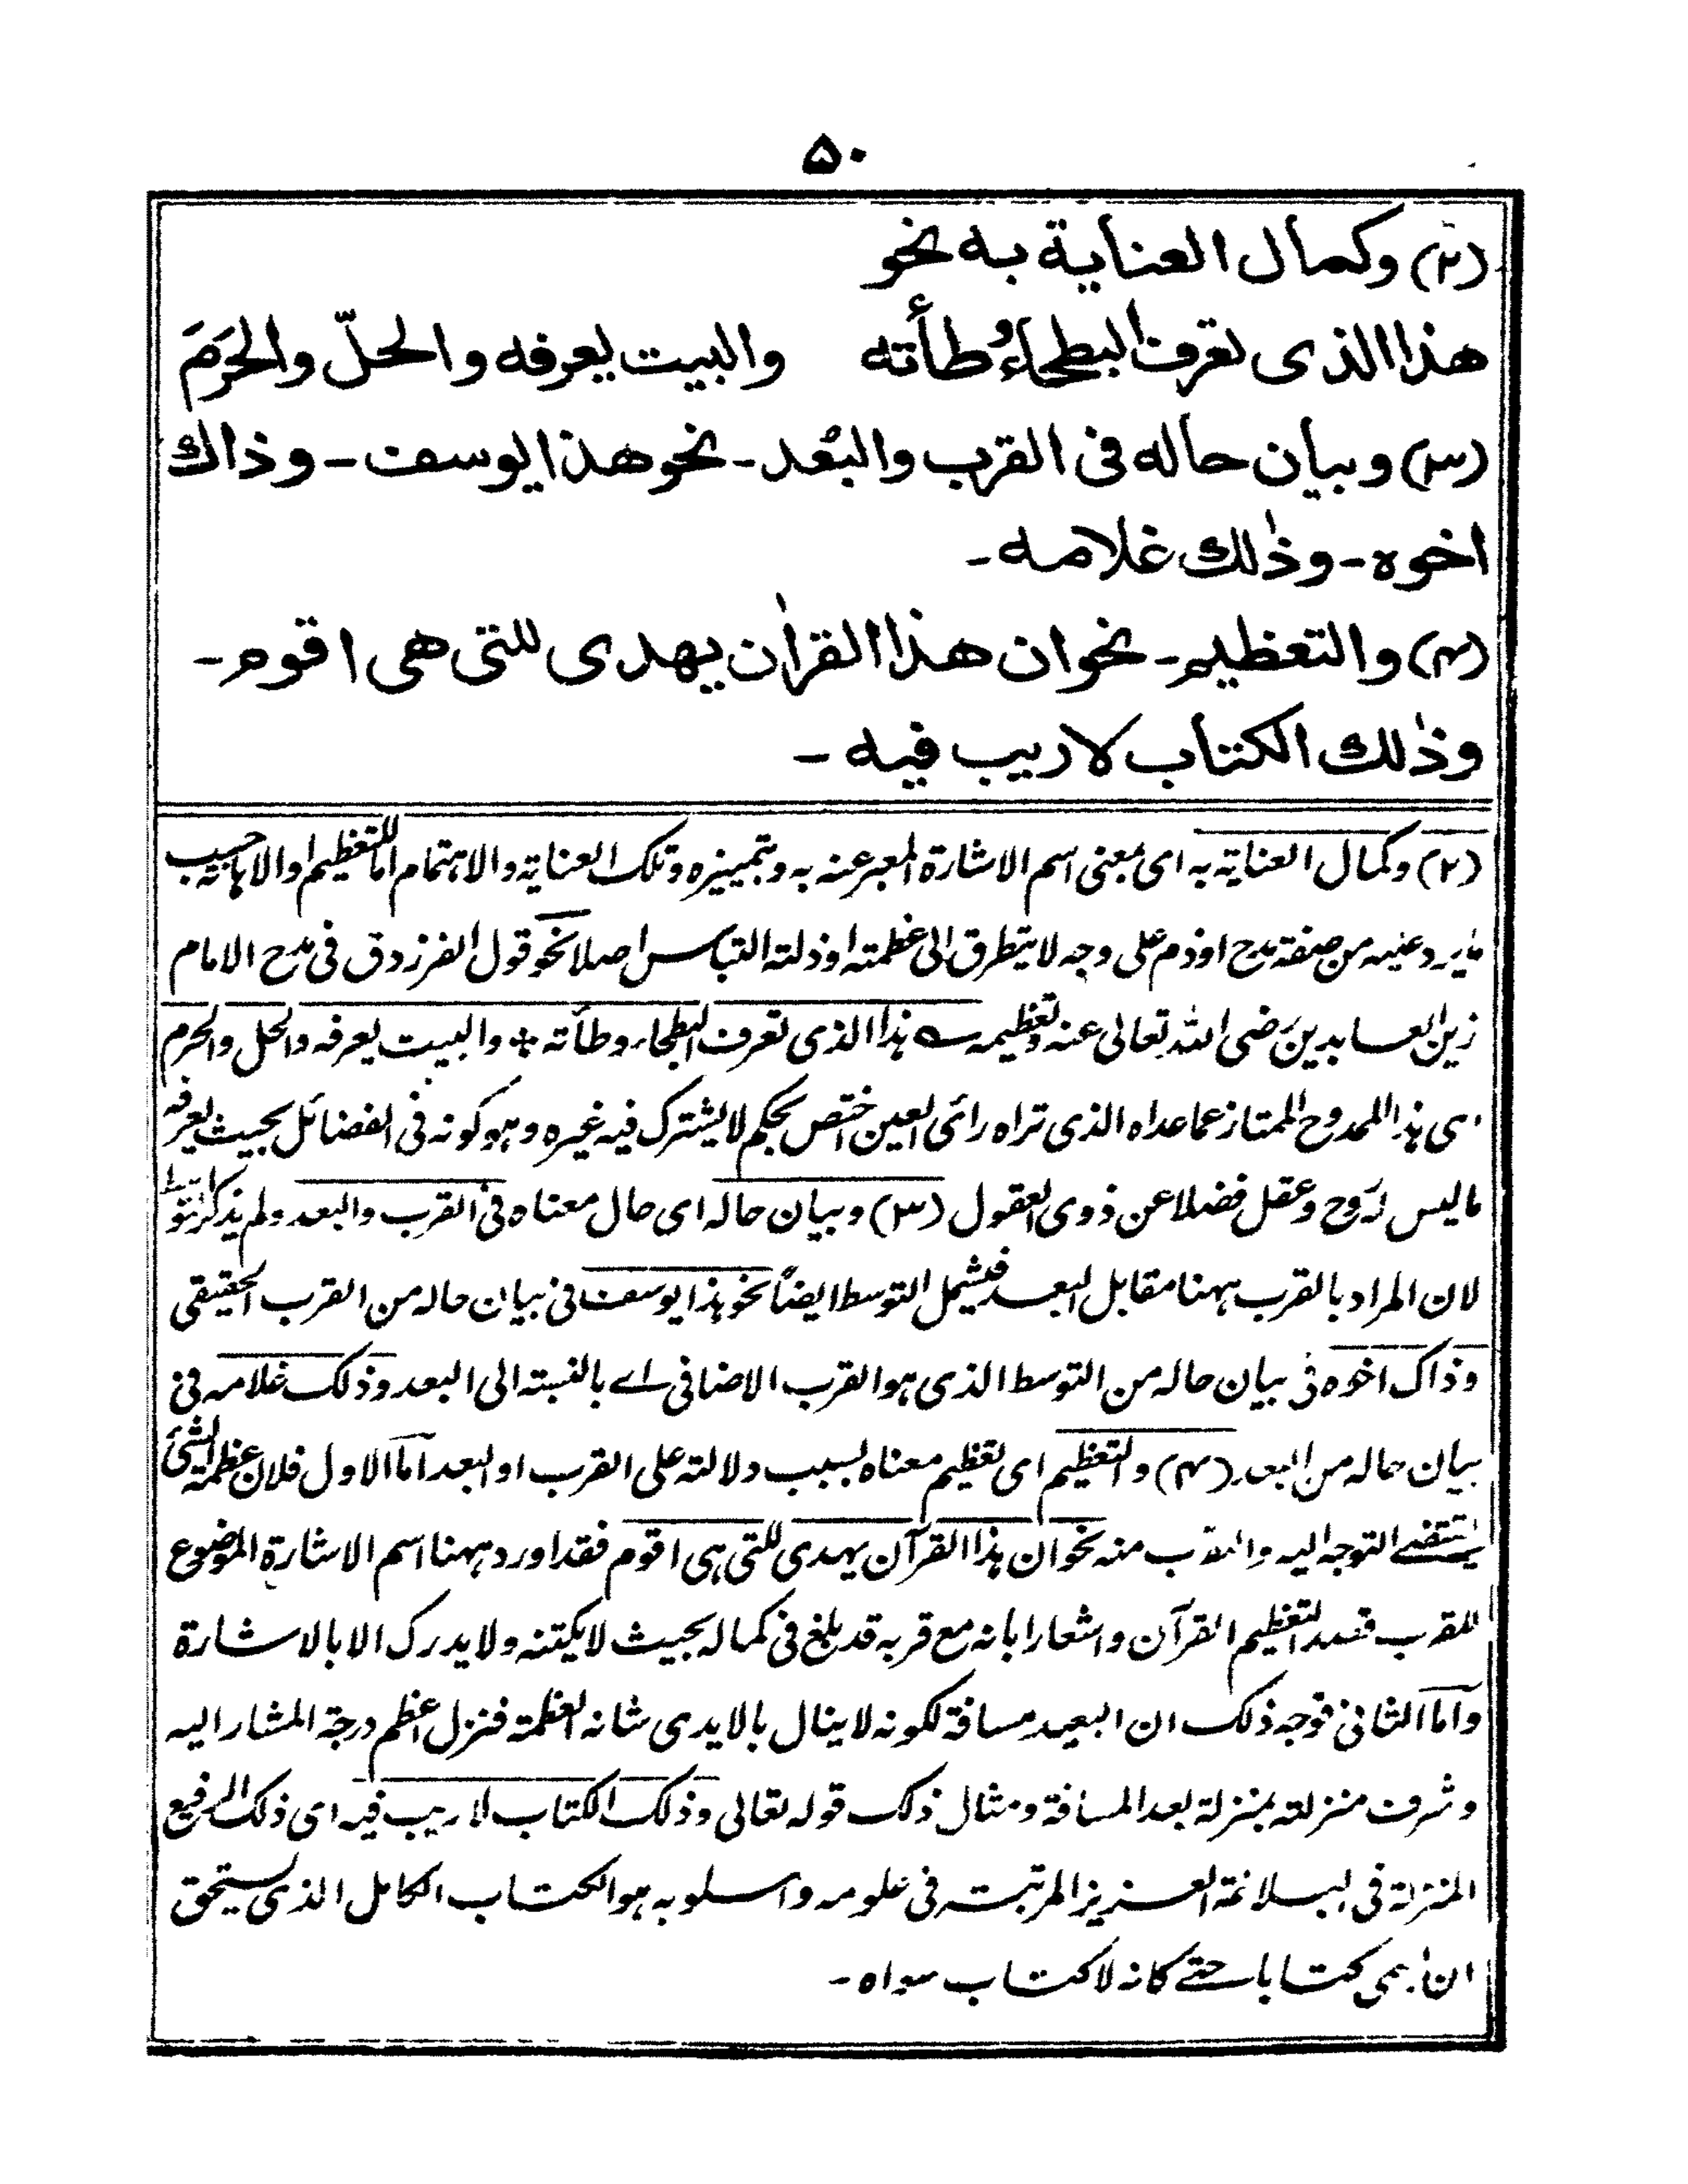 ۵۰
(۲) وكمال العناية به نحو
هذا الذی تعرف البطحاءُ وطأته والبيت يعرفه والحلّ والحَرَمَ
(۳) وبيان حاله فی القرب والبُعد - نحو هذا يوسف - وذاك
اخوه - وذٰلك غلامه -
(۴) والتعظيم - نحو ان هذا القراٰن يهدی للتی هی اقوم -
وذٰلك الكتاب لا ريب فيه -
(۲) وكمال العناية به ای بمعنى اسم الاشارة المعبر عنه به وبتمييزه وتلك العناية والاهتمام اما للتعظيم او الاهانة بحسب
ما يرد عليه من صفة مدح او ذم على وجه لا يتطرق الى عظمته او ذلته التباس اصلا نحو قول الفرزدق فی مدح الامام
زين العابدين رضی الله تعالى عنه وتعظيمه ؎ هذا الذی تعرف البطحاء وطأته * والبيت يعرفه والحل والحرم
ای هذا الممدوح الممتاز عما عداه الذی تراه رائی العين اختص بحكم لا يشترك فيه غيره وهو كونه فی الفضائل بحيث يعرفه
ما ليس له روح وعقل فضلا عن ذوی العقول (۳) وبيان حاله ای حال معناه فی القرب والبعد ولم يذكر التوسط
لان المراد بالقرب ههنا مقابل البعد فيشمل التوسط ايضاً نحو هذا يوسف فی بيان حاله من القرب الحقيقی
وذاك اخوه فی بيان حاله من التوسط الذی هو القرب الاضافی اے بالنسبة الى البعد وذلك غلامه فی
بيان حاله من البعد (۴) والتعظيم ای تعظيم معناه بسبب دلالته على القرب او البعد اما الاول فلان عظمة الشئ
يقتضے التوجه اليه والتقرب منه نحو ان هذا القرآن يهدی للتی هی اقوم فقد اورد ههنا اسم الاشارة الموضوع
للقرب قصدا لتعظيم القرآن واشعارا بانه مع قربه قد بلغ فی كماله بحيث لا يكتنه ولا يدرك الا بالاشارة
واما الثانی فوجه ذلك ان البعيد مسافة لكونه لا ينال بالايدی شانه العظمة فنزل عظم درجة المشار اليه
وشرف منزلته بمنزلة بعد المسافة ومثال ذلك قوله تعالى وذلك الكتاب لا ريب فيه ای ذلك الرفيع
المنزلة فی البلاغة العزيز المرتبة فی علومه واسلوبه هو الكتاب الكامل الذی يستحق
ان يسمی كتابا حتے كانه لا كتاب سواه -